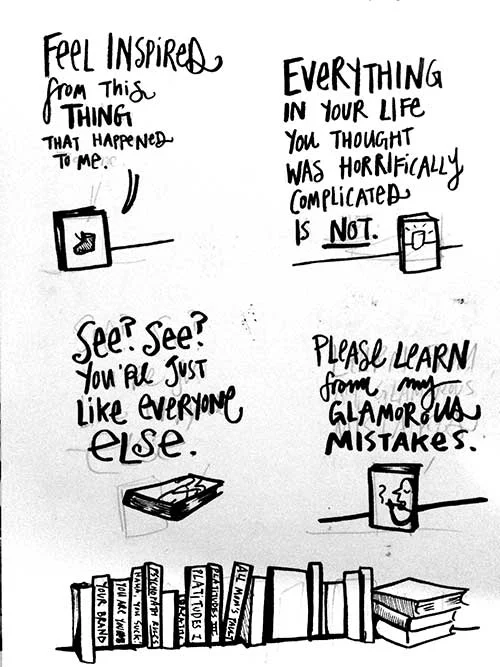 FEEL INSPIRED
from this
THING
THAT HAPPENED
TO ME.
EVERYTHING
IN YOUR LIFE
YOU THOUGHT
WAS HORRIFICALLY
COMPLICATED
IS NOT.
See? See?
YOU'RE JUST
LIKE EVERYONE
ELSE.
PLEASE LEARN
from my
GLAMOROUS
MISTAKES.
YOUR BRAND
YOU ARE
HAHA YOU SUCK
PLATITUDES I
PLATITUDES
ALL MOM'S FAULT